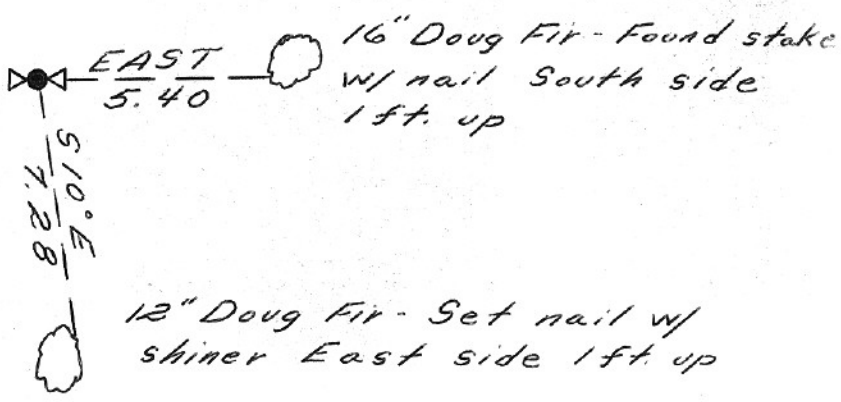 16" Doug Fir - Found stake
EAST
w/ nail South side
5.40
1 ft. up
S10°E
7.28
12" Doug Fir - Set nail w/
shiner East side 1 ft. up